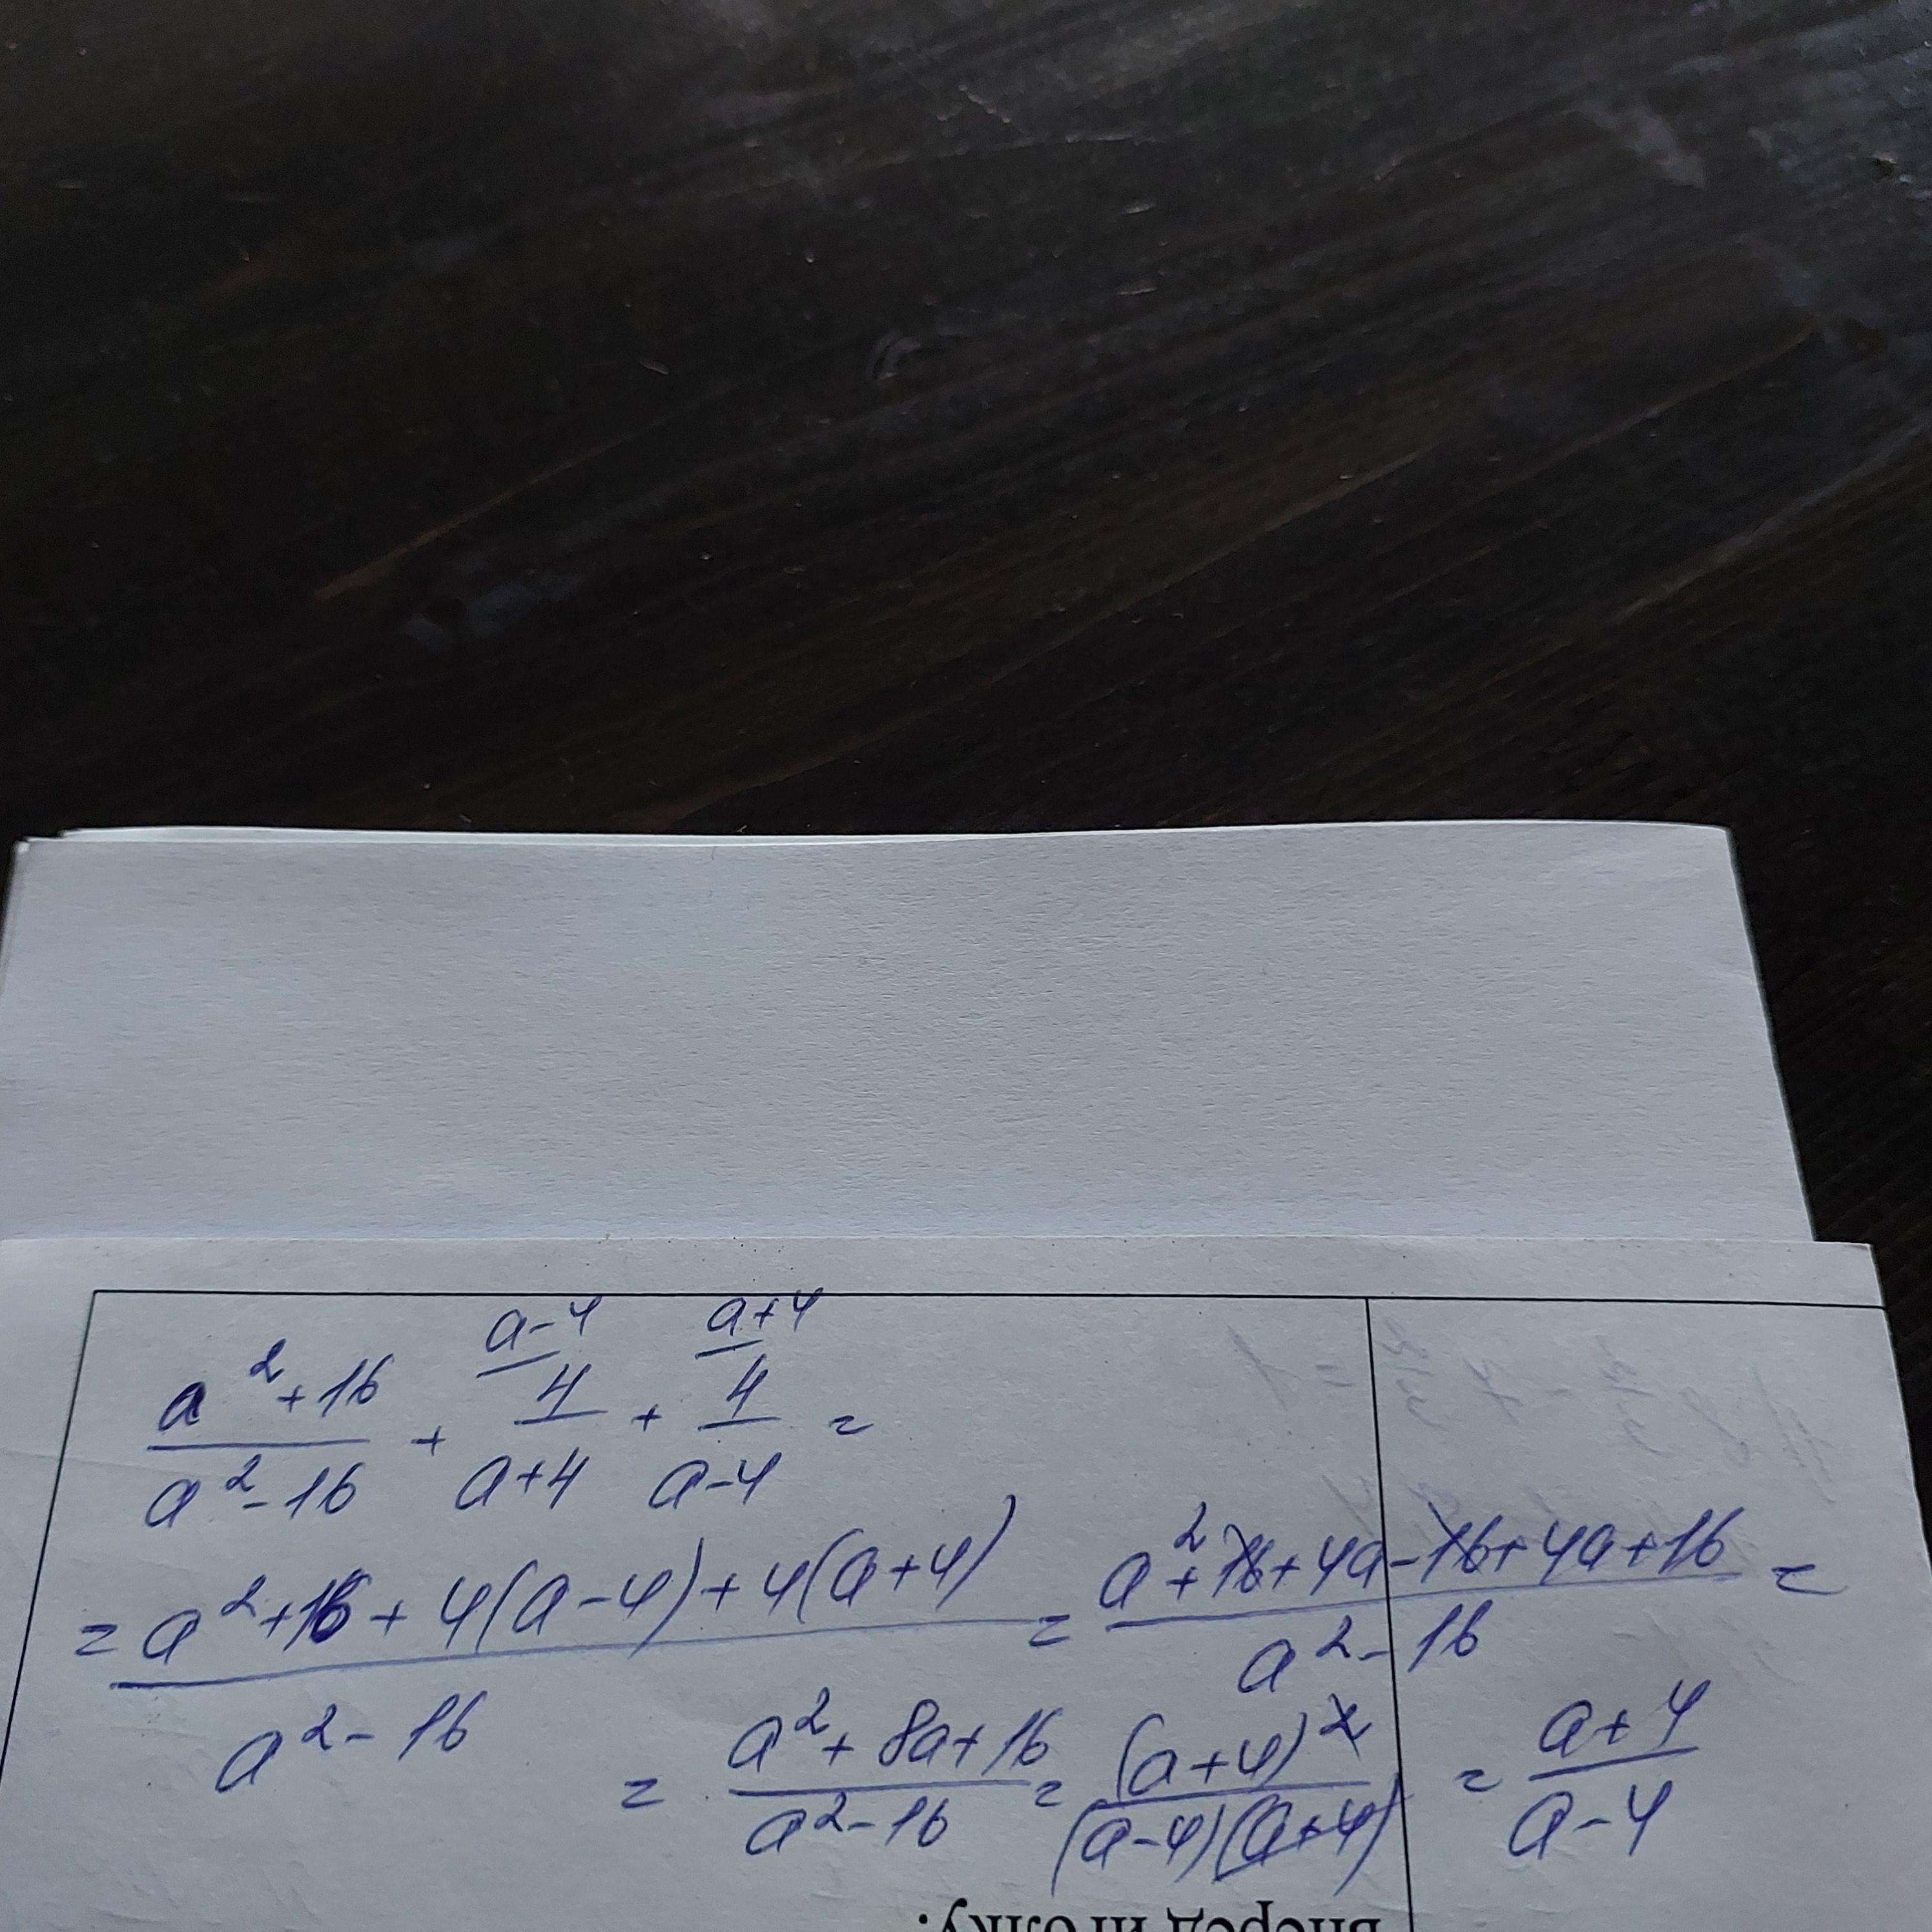 a-4 a+4
a²+16 / a²-16 + 4 / a+4 + 4 / a-4 =
= a²+16+4(a-4)+4(a+4) / a²-16 = a²+16+4a-16+4a+16 / a²-16 =
= a²+8a+16 / a²-16 = (a+4)² / (a-4)(a+4) = a+4 / a-4
вперед иголку: